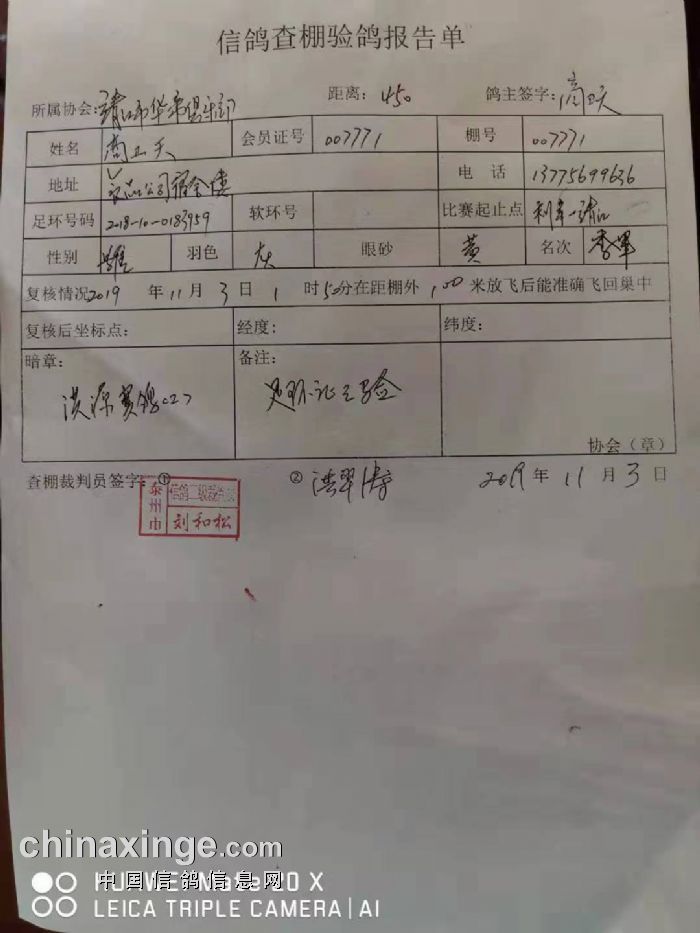 信鸽查棚验鸽报告单
所属协会: 靖江市华帝俱乐部 距离: 450 鸽主签字:
姓名 会员证号 007771 棚号 007771
地址 电话 13775699636
足环号码 2018-10-0183959 软环号 比赛起止点 利辛-靖江
性别 雄 羽色 灰 眼砂 黄 名次 季军
复核情况 2019 年 11 月 3 日 1 时 50 分在距棚外 100 米放飞后能准确飞回巢中
复核后坐标点: 经度: 纬度:
暗章: 备注:
洪源赛鸽 足环记已验
协会(章)
查棚裁判员签字: ① ② 2019 年 11 月 3 日
泰州市
刘和松
chinaxinge.com
中国信鸽信息网
HUAWEI Mate 20 X
LEICA TRIPLE CAMERA | AI